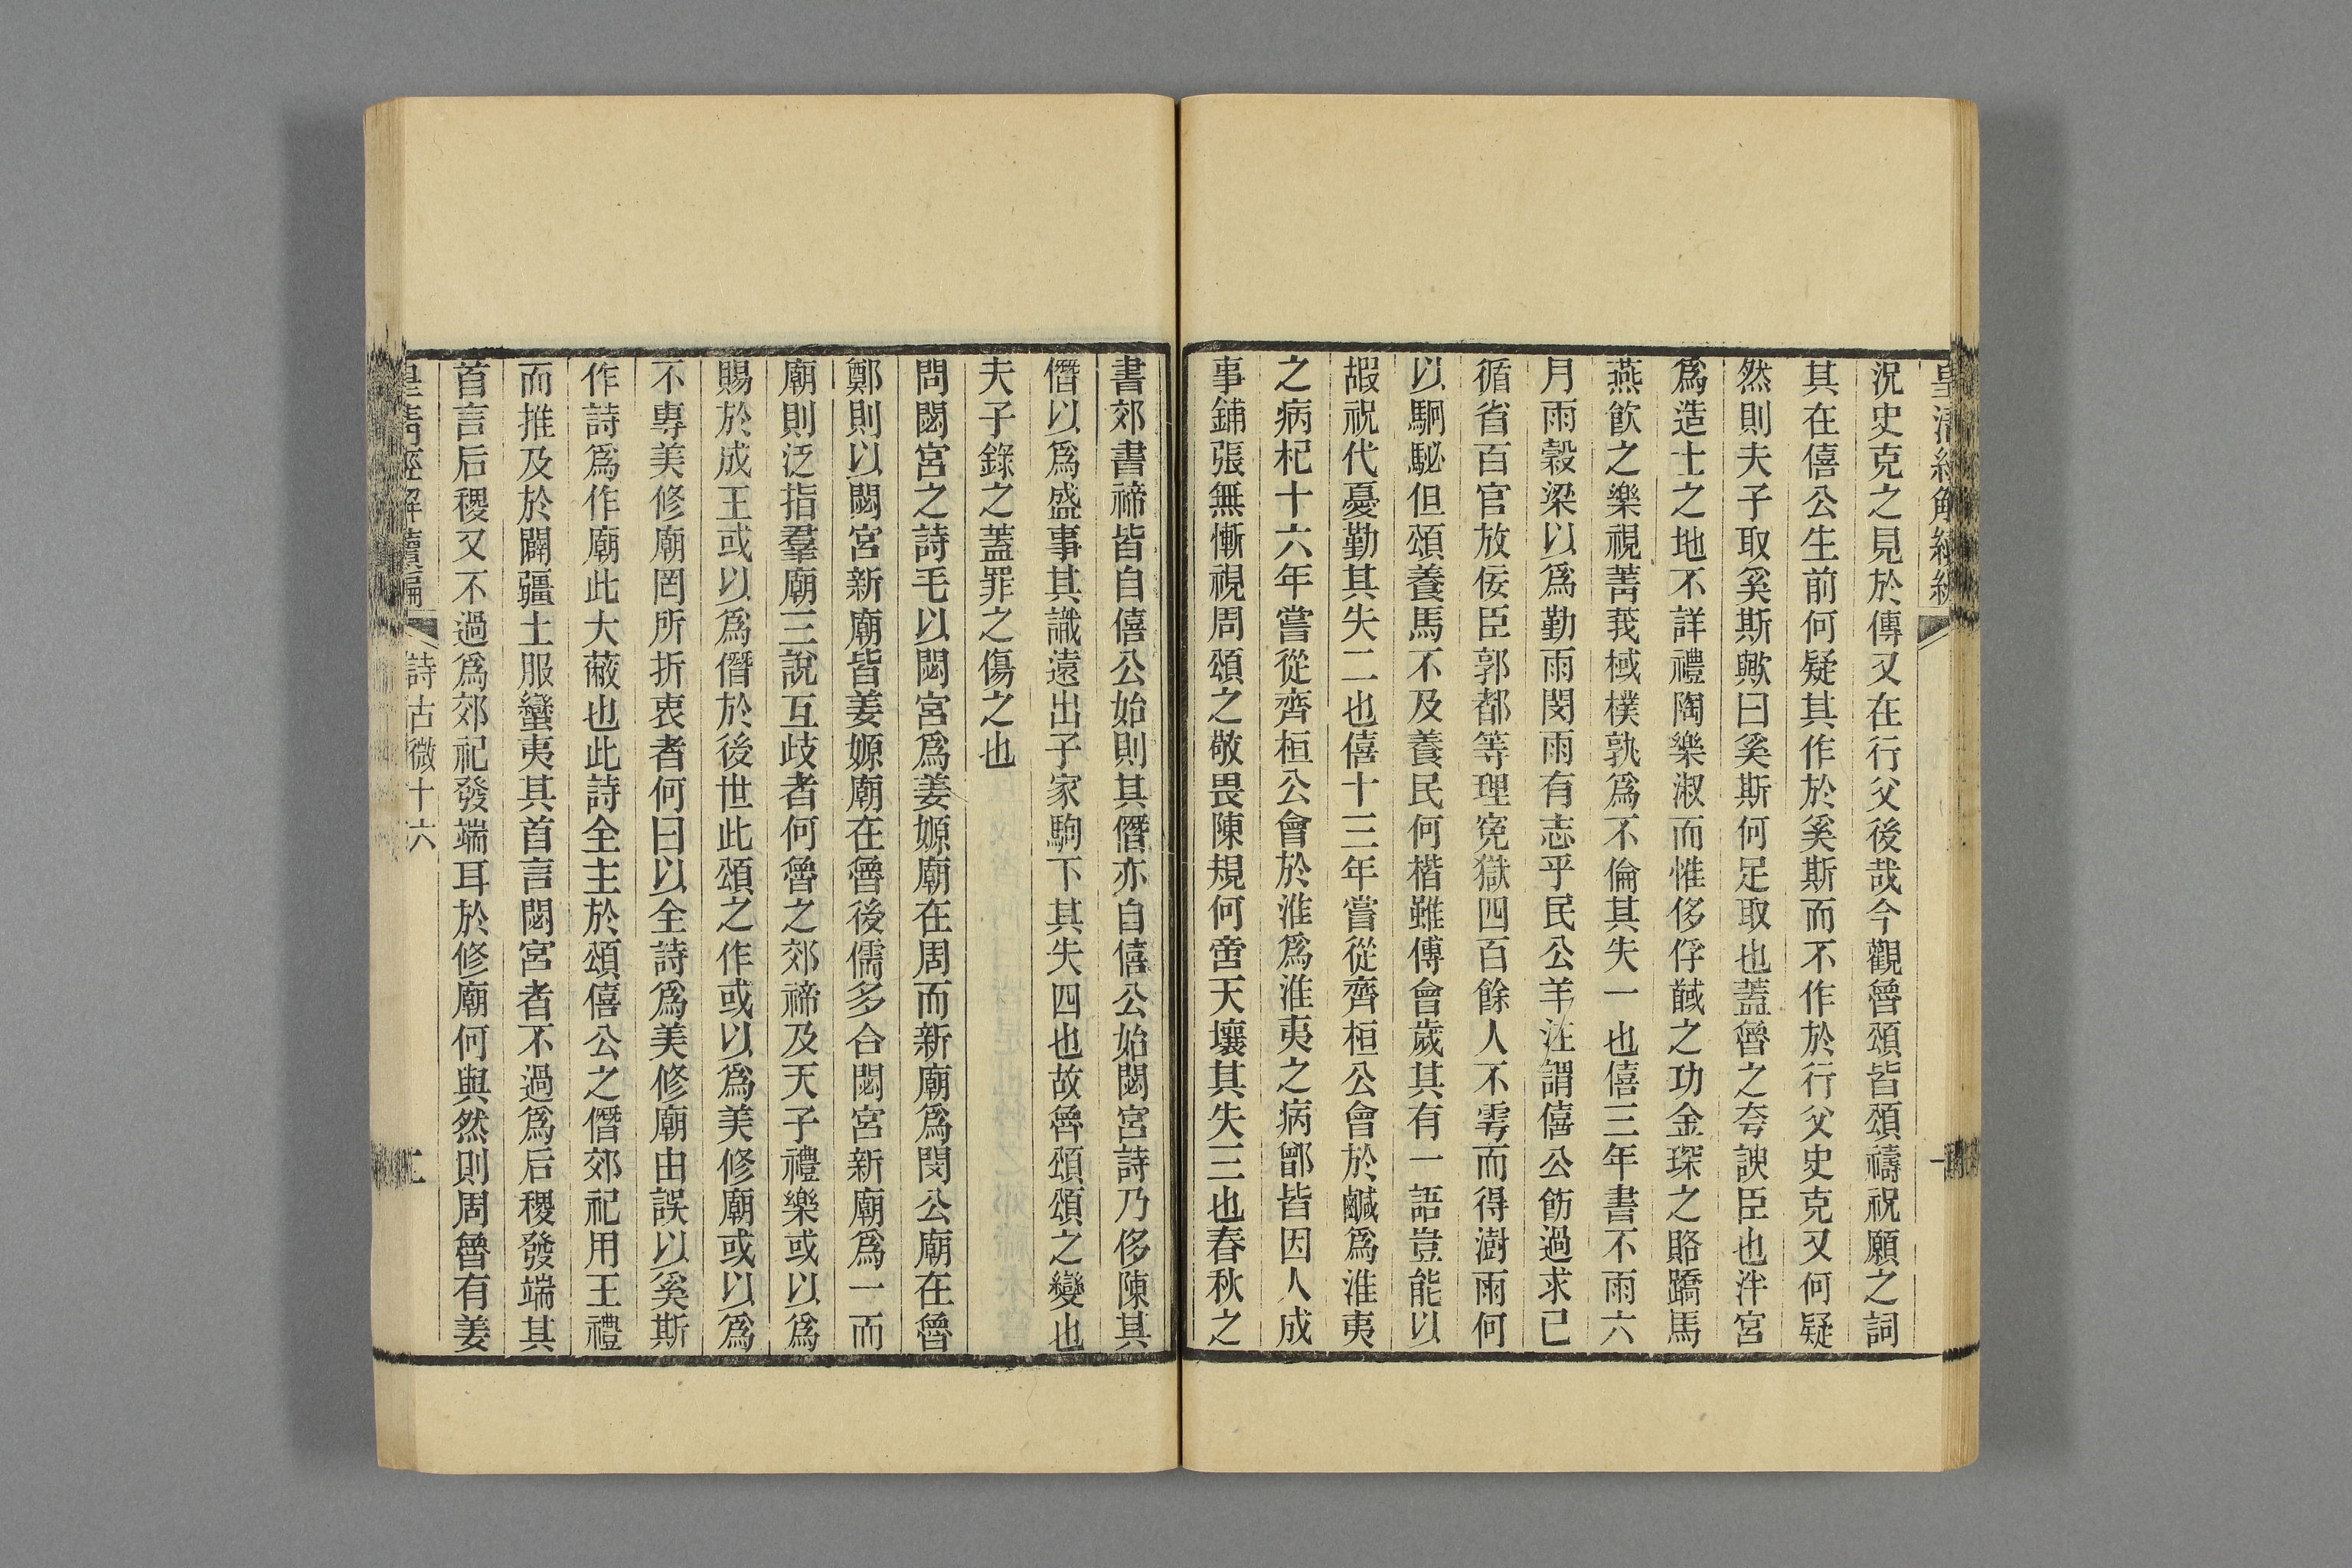 皇清經解續編
一
況史克之見於傳又在行父後哉今觀魯頌皆頌禱祝願之詞
其在僖公生前何疑其作於奚斯而不作於行父史克又何疑
然則夫子取奚斯歟曰奚斯何足取也蓋魯之夸諛臣也泮宮
爲造士之地不詳禮陶樂淑而惟侈俘馘之功金琛之賂蹻馬
燕飮之樂視菁莪棫樸孰爲不倫其失一也僖三年書不雨六
月雨穀梁以爲勤雨閔雨有志乎民公羊注謂僖公飭過求己
循省百官放佞臣郭都等理寃獄四百餘人不雩而得澍雨何
以駉駜但頌養馬不及養民何楷雖傅會歲其有一語豈能以
嘏祝代憂勤其失二也僖十三年嘗從齊桓公會於鹹爲淮夷
之病杞十六年嘗從齊桓公會於淮爲淮夷之病鄫皆因人成
事鋪張無慚視周頌之敬畏陳規何啻天壤其失三也春秋之
書郊書禘皆自僖公始則其僭亦自僖公始閟宮詩乃侈陳其
僭以爲盛事其識遠出子家駒下其失四也故魯頌頌之變也
夫子錄之蓋罪之傷之也
問閟宮之詩毛以閟宮爲姜嫄廟在周而新廟爲閔公廟在魯
鄭則以閟宮新廟皆姜嫄廟在魯後儒多合閟宮新廟爲一而
廟則泛指羣廟三說互歧者何魯之郊禘及天子禮樂或以爲
賜於成王或以爲僭於後世此頌之作或以爲美修廟或以爲
不專美修廟罔所折衷者何曰以全詩爲美修廟由誤以奚斯
作詩爲作廟此大蔽也此詩全主於頌僖公之僭郊祀用王禮
而推及於闢疆土服蠻夷其首言閟宮者不過爲后稷發端其
首言后稷又不過爲郊祀發端耳於修廟何與然則周魯有姜
皇清經解續編
詩古微十六
二